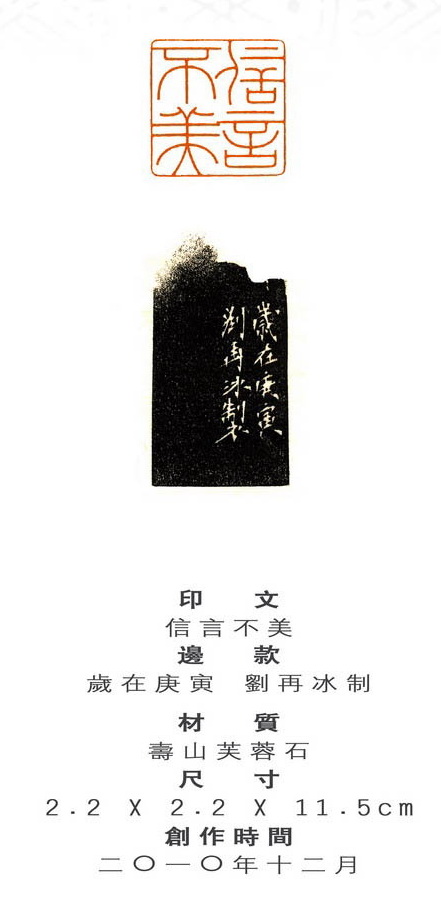 信言不美
歲在庚寅
劉再冰製
印 文
信言不美
邊 款
歲在庚寅 劉再冰制
材 質
壽山芙蓉石
尺 寸
2.2 X 2.2 X 11.5cm
創作時間
二〇一〇年十二月